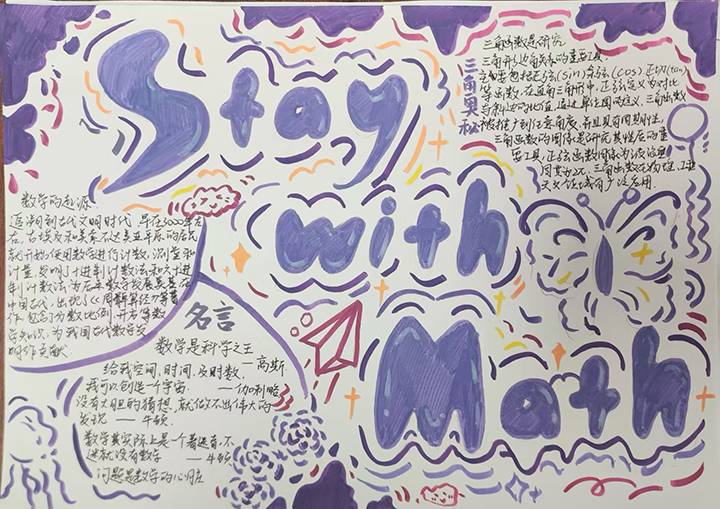 Stay
with
Math
三角奥秘
三角函数是研究
三角形边角关系的重要工具，
主要包括正弦(sin)余弦(cos)正切(tan)
等函数。在直角三角形中，正弦定义为对比
与斜边的比值，通过单位圆的定义，三角函数
被推广到任意角度，并且具有周期性，
三角函数的图像是研究其性质的重
要工具，正弦函数图像为波浪
周其为2π，三角函数在物理、工程
天文等领域有广泛应用．
数学的起源
追溯到古代文明时代 早在3000年左
右，古埃及和美索不达美亚平原的居民
就开始使用数字进行计数，测量和
计量 影响了十进制计数法和六十进
制计数法，为后来数学发展奠基 在
中国古代，出现了《周髀算经》等著
作 包含了分数比例，开方等数
学知识，为我国古代数学发
明作贡献．
名言
数学是科学之王
——高斯
给我空间、时间、及对数
我可以创造一个宇宙 ——伽利略
没有大胆的猜想，就做不出伟大的
发现 ——牛顿
数学其实际上是一个着迷者，不
迷就没有数学 ——牛顿
问题是数学的心脏